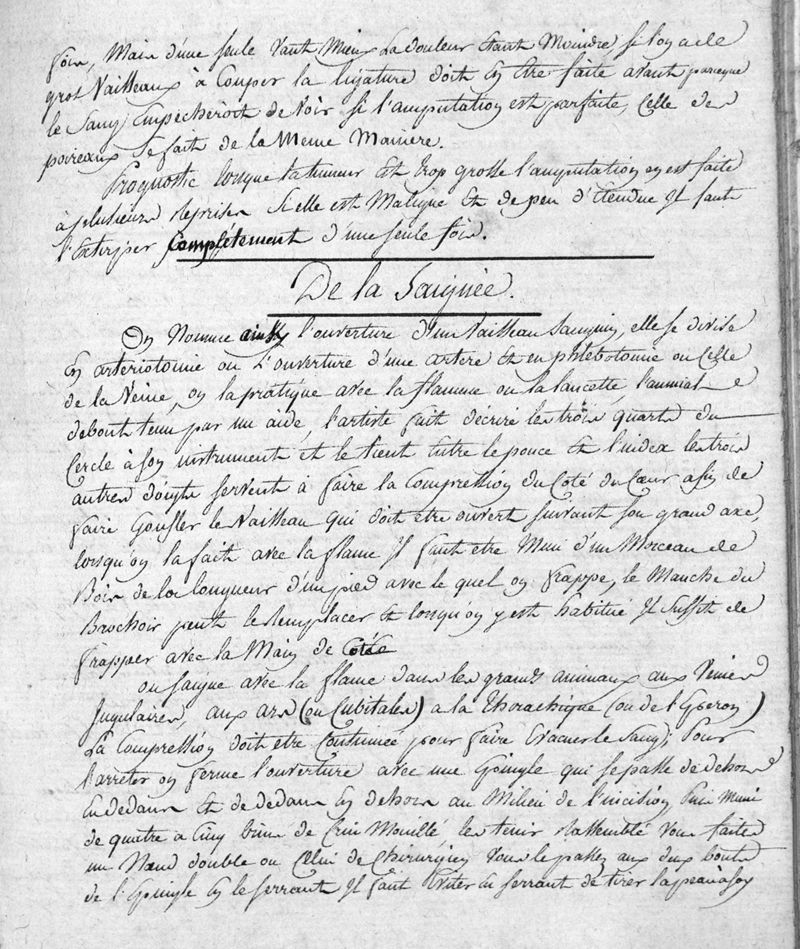 fois, Mais d'une seule vaut Mieux La douleur étant Moindre, si l'on a de
gros Vaisseaux à Couper la ligature doit En être faite avant parceque
le Sang Empecheroit de Voir si l'amputation est parfaite, Celle des
poireaux se fait de la Meme Maniere.
Prognostic lorsque la tumeur Est trop grosse l'amputation en est faite
à plusieurs Reprises Si elle est Maligne Et de peu d'étendue Il faut
l'Extirper Complétement d'une seule fois.
De la Saignée.
On Nomme ainsy l'ouverture d'un Vaisseau Sanguin, elle se divise
En arteriotomie ou L'ouverture d'une artere Et en phlebotomie ou Celle
de la Veine, on la pratique avec la flamme ou la lancette, l'animal
debout tenu par un aide, l'artiste fait decrire les trois quarts du
Cercle à son instrument et le tient Entre le pouce Et l'index les trois
autres doigts servent à faire la Compression du Coté du Cœur afin de
faire Gonfler le Vaisseau qui doit être ouvert suivant son grand axe,
lorsqu'on la fait avec la flame Il faut etre Muni d'un Morceau de
Bois de la longueur d'un pied avec le quel on frappe, le Manche du
Brochoir peut le Remplacer Et lorsqu'on y est habitué Il suffit de
frapper avec la Main de Coté
on saigne avec la flame dans les grands animaux aux Veines
Jugulaires, aux ars (ou Cubitales) a la thorachique (ou de l'Eperon)
La Compression doit etre Continuée pour faire Evacuer le Sang; Pour
l'arreter on ferme l'ouverture avec une Epingle qui se passe de dehors
En dedans Et de dedans En dehors au Milieu de l'incision, Puis Muni
de quatre a Cinq brins de Crin Mouillé, les tenir Rassemblé Vous faites
un Nœud double ou Celui de Chirurgien Vous le passez aux deux bouts
de l'Epingle En le serrant Il faut Eviter En serrant de tirer la peau à soy